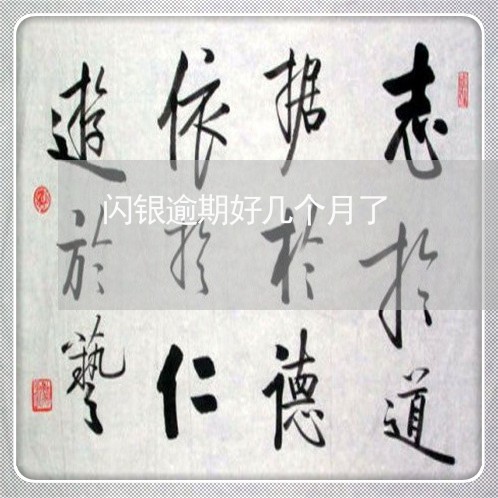 志於道
据於德
依於仁
遊於藝
闪银逾期好几个月了